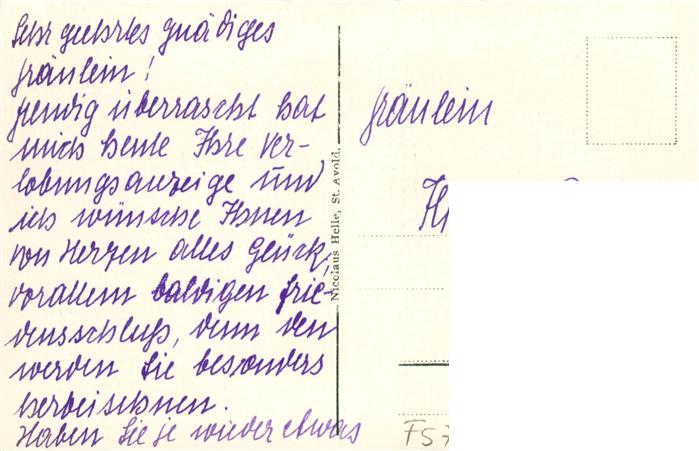 Sehr geehrtes gnädiges
Fräulein!
freudig überrascht hat
mich heute Ihre Ver-
lobungsanzeige und
ich wünsche Ihnen
von Herzen alles Glück,
vor allem baldigen Frie-
densschluß, denn den
werden Sie besonders
herbeisehnen.
Haben Sie je wieder etwas
Nicolaus Helle, St. Avold.
Fräulein
FS